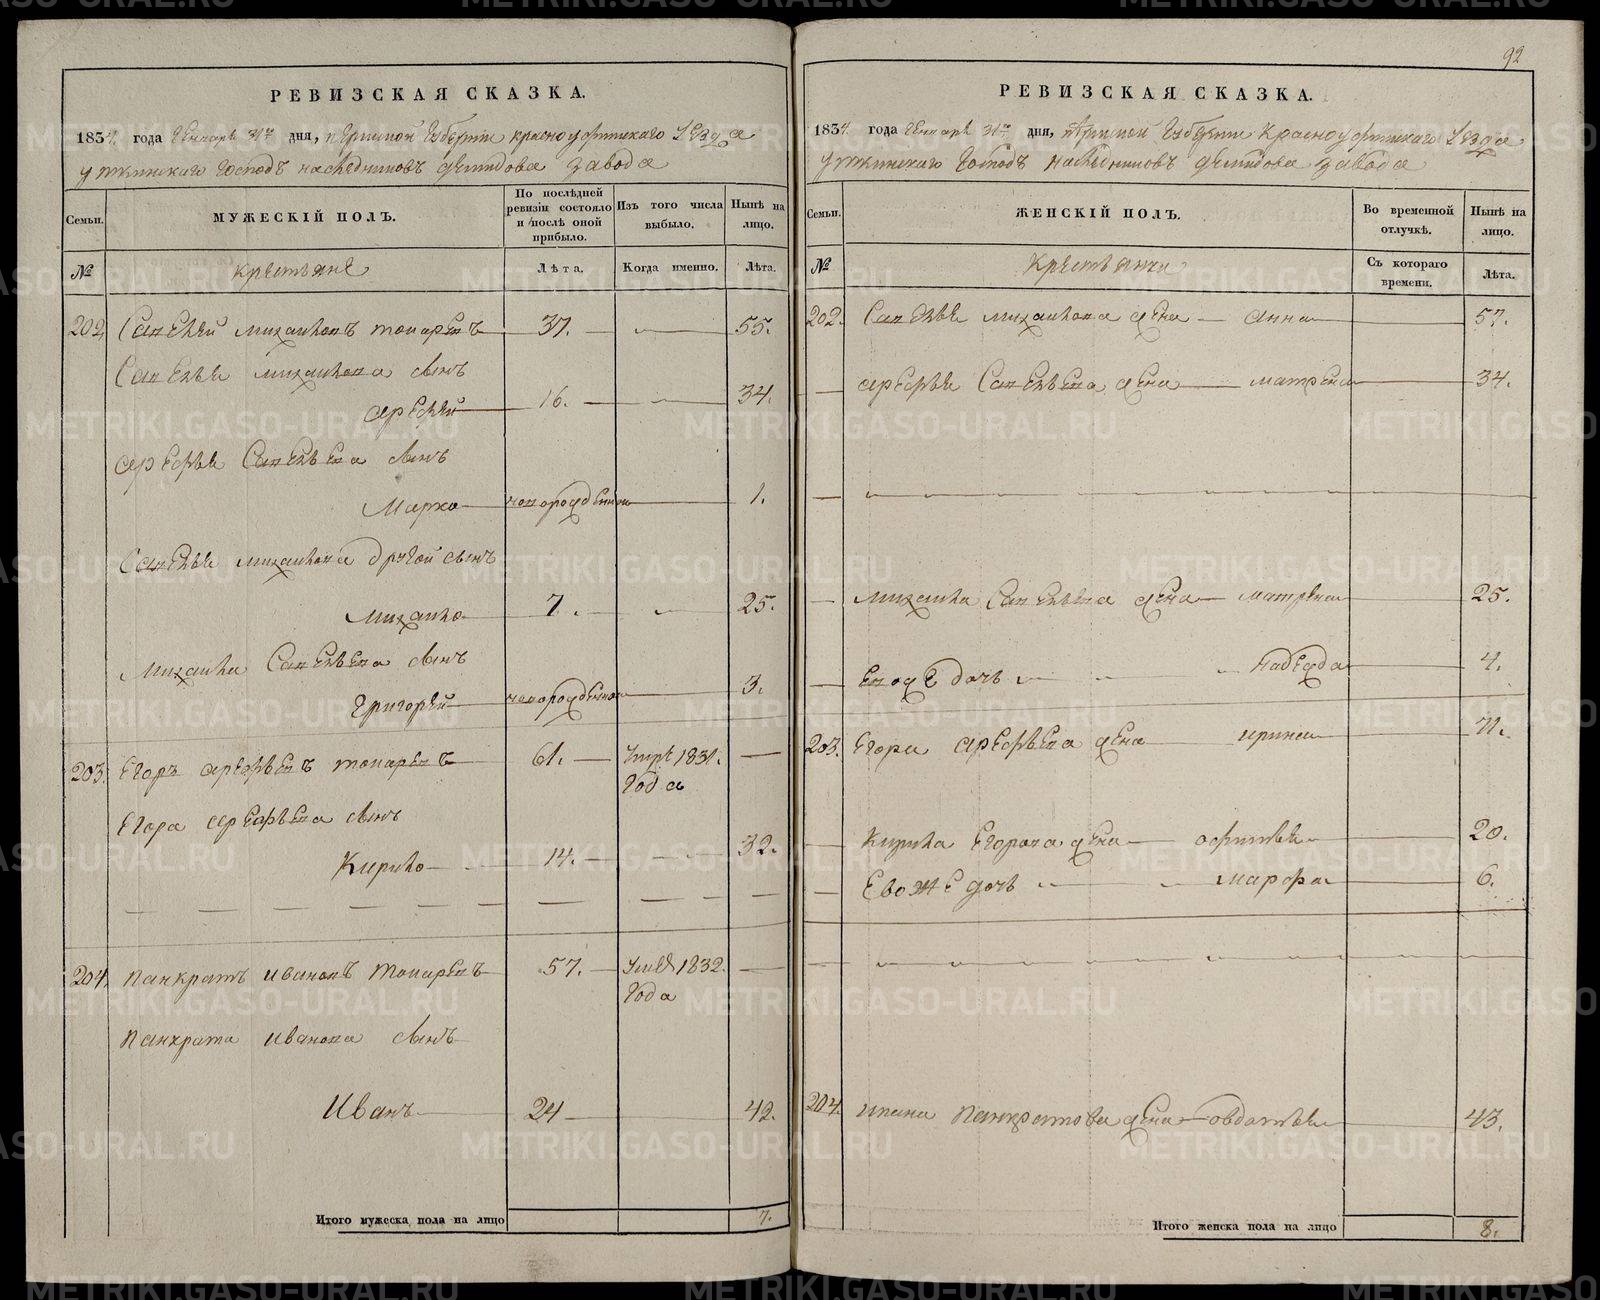 92
РЕВИЗСКАЯ СКАЗКА.
1834 года Генваря 31го дня, пермской Губернии красноуфимскаго уезда
уткинскаго Господъ наследниковъ демидова завода
Семьи.
МУЖЕСКІЙ ПОЛЪ.
По послѣдней ревизіи состояло и послѣ оной прибыло.
Изъ того числа выбыло.
Нынѣ на лицо.
№
крестьяне
Лѣта.
Когда именно.
Лѣта.
202. Савелий михайловъ токаревъ 37. 55.
Савелья михайлова сынъ
16. 34.
сынъ
Марко новорожденной 1.
Савелья михайлова другой сынъ
Михайло 7. 25.
Михайла Савельева сынъ
Григорей новорожденной 3.
203. Егоръ токаревъ 61. Умре 1831. Года
Егора сынъ
Кирило 14. 32.
204. панкратъ ивановъ токаревъ 57. 1832. Года
панкрата иванова сынъ
Иванъ 24 42.
Итого мужеска пола на лицо 7.
РЕВИЗСКАЯ СКАЗКА.
1834. года Генваря 31го дня, пермской Губернии Красноуфимскаго уезда
уткинскаго Господъ наследниковъ демидова завода
Семьи.
ЖЕНСКІЙ ПОЛЪ.
Во временной отлучкѣ.
Нынѣ на лицо.
№
Съ котораго времени.
Лѣта.
202. Савелья михайлова жена Анна 57.
Савельева жена матрена 34.
михайла Савельева жена матрена 25.
Евоже дочь надежда 4.
203. Егора жена ирина 71.
Кирила Егорова жена 20.
Евоже дочь марфа 6.
204. ивана панкратова жена 43.
Итого женска пола на лицо 8.
METRIKI.GASO-URAL.RU